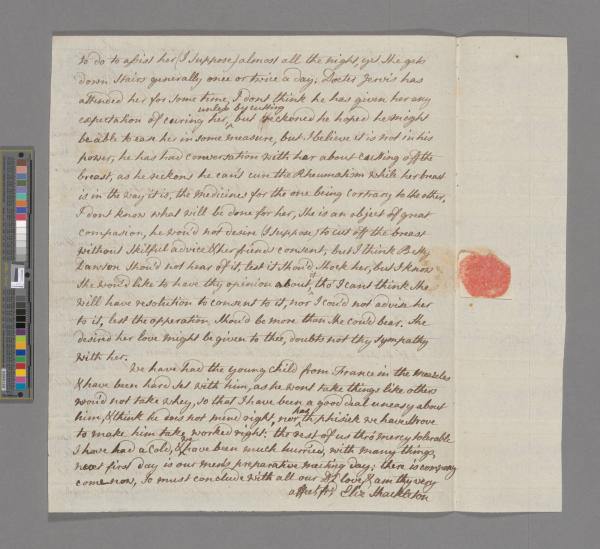 to do to assist her (I suppose) almost all the night, yet she gets
down stairs generally once or twice a day; Docter Jervis has
attended her for some time, I dont think he has given her any
expectation of curing her, unless by cutting but reckoned he hoped he might
be able to ease her in some measure, but I believe it is not in his
power, he has had conversation with her about casting off the
breast, as he reckons he can't cure the Rheumatism while her breast
is in the way it is, the medicines for the one being contrary to the other,
I dont know what will be done for her, she is an object of great
compasion, he wou'd not desire (I suppose) to cut off the breast
without skilful advice & her friends consent, but I think Betty
Lawson shou'd not hear of it, lest it shou'd shock her, but I know
she wou'd like to have thy opinion about it, tho' I cant think she
will have resolution to consent to it, nor I cou'd not advise her
to it, lest the opperation shou'd be more than she cou'd bear. She
desired her love might be given to thee, doubts not thy sympathy
with her.
We have had the young Child from France in the meazles
& have been hard set with him, as he wont take things like others
wou'd not take whey, so that I have been a good deal uneasy about
him, & think he does not mend right, nor has th phisick we have strove
to make him take worked right; the rest of us thro mercy tolerable
I have had a Cold, & have been much hurried, with many things,
next first day is our meets preparative meeting day; there is company
come now, so must conclude with all our Dr love & am thy very
affect Fd Eliz Shackleton